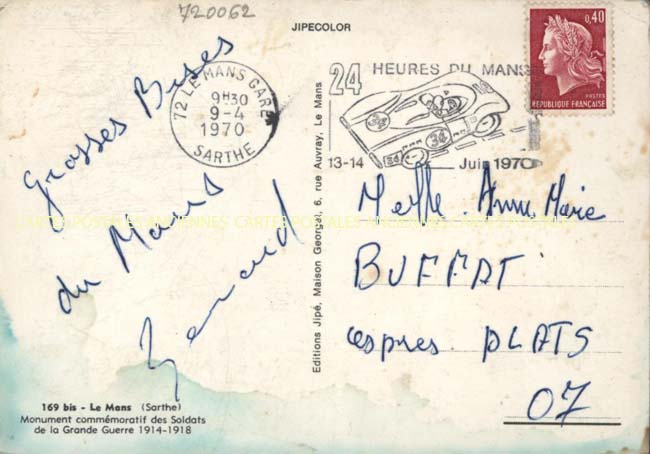 720062
JIPECOLOR
72 LE MANS GARE
9H30
9-4
1970
SARTHE
24 HEURES DU MANS
34
34
13-14 Juin 1970
0,40
POSTES
REPUBLIQUE FRANÇAISE
Grosses Bises
du Mans
CARTES POSTALES ANCIENNES CARTES POSTALES ANCIENNES CARTES POSTALES ANCIENNES
Editions Jipé, Maison Georget, 6, rue Auvray, Le Mans
Melle Anne Marie
BUFFAT
PLATS
07
169 bis - Le Mans (Sarthe)
Monument commémoratif des Soldats
de la Grande Guerre 1914-1918